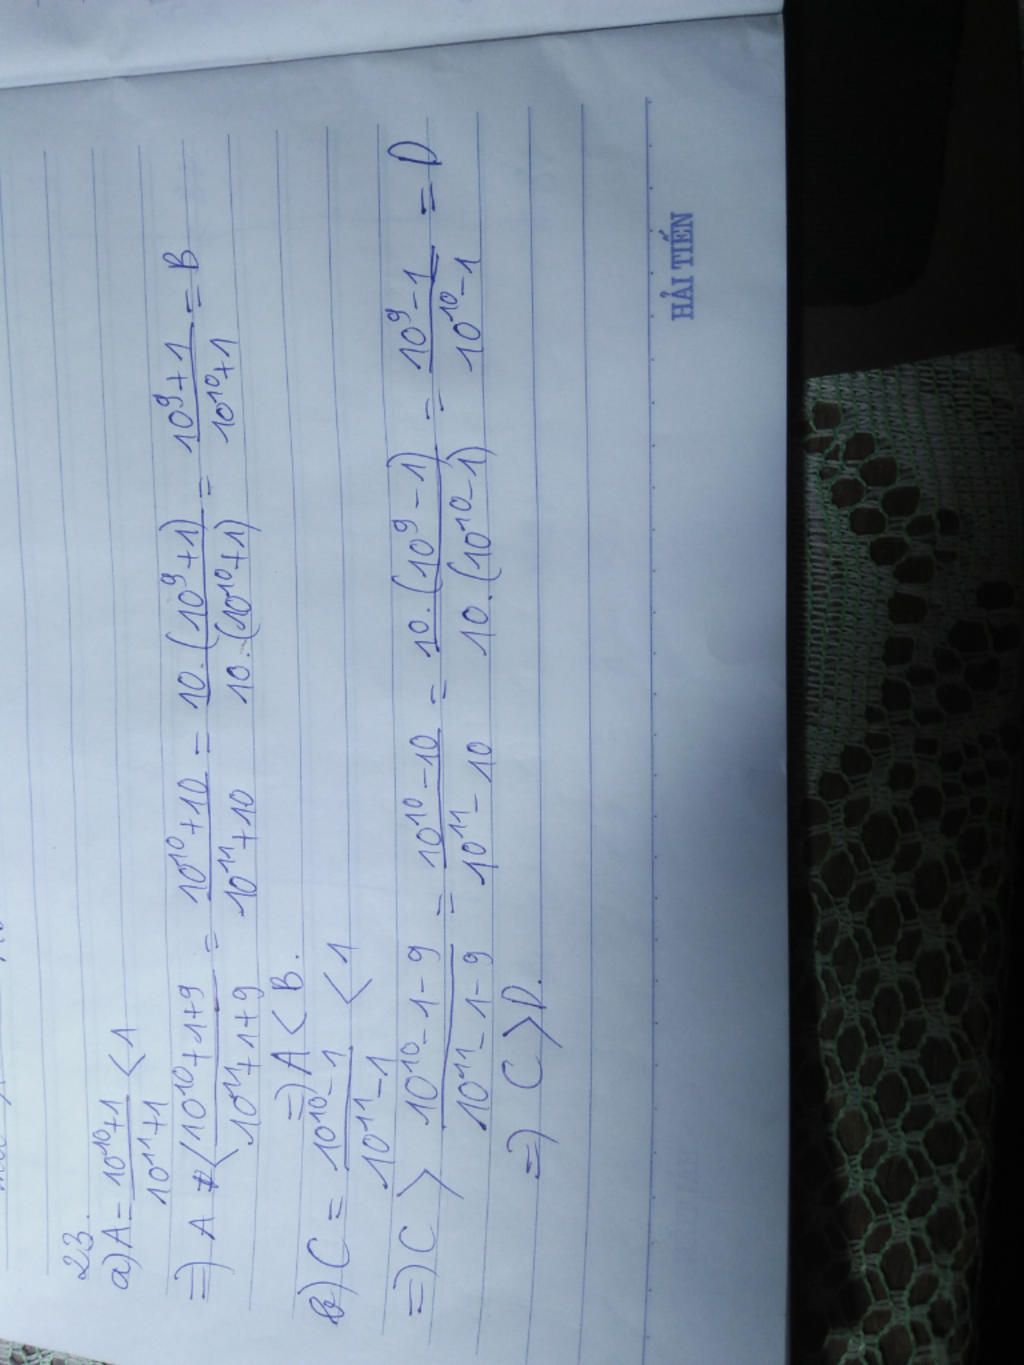 23.
a) A = 10^10+1 / 10^11+1 < 1
=) A < 10^10+1+9 / 10^11+1+9 = 10^10+10 / 10^11+10 = 10.(10^9+1) / 10.(10^10+1) = 10^9+1 / 10^10+1 = B
=) A < B.
b) C = 10^10-1 / 10^11-1 < 1
=) C > 10^10-1-9 / 10^11-1-9 = 10^10-10 / 10^11-10 = 10.(10^9-1) / 10.(10^10-1) = 10^9-1 / 10^10-1 = D
=) C > D.
HẢI TIẾN